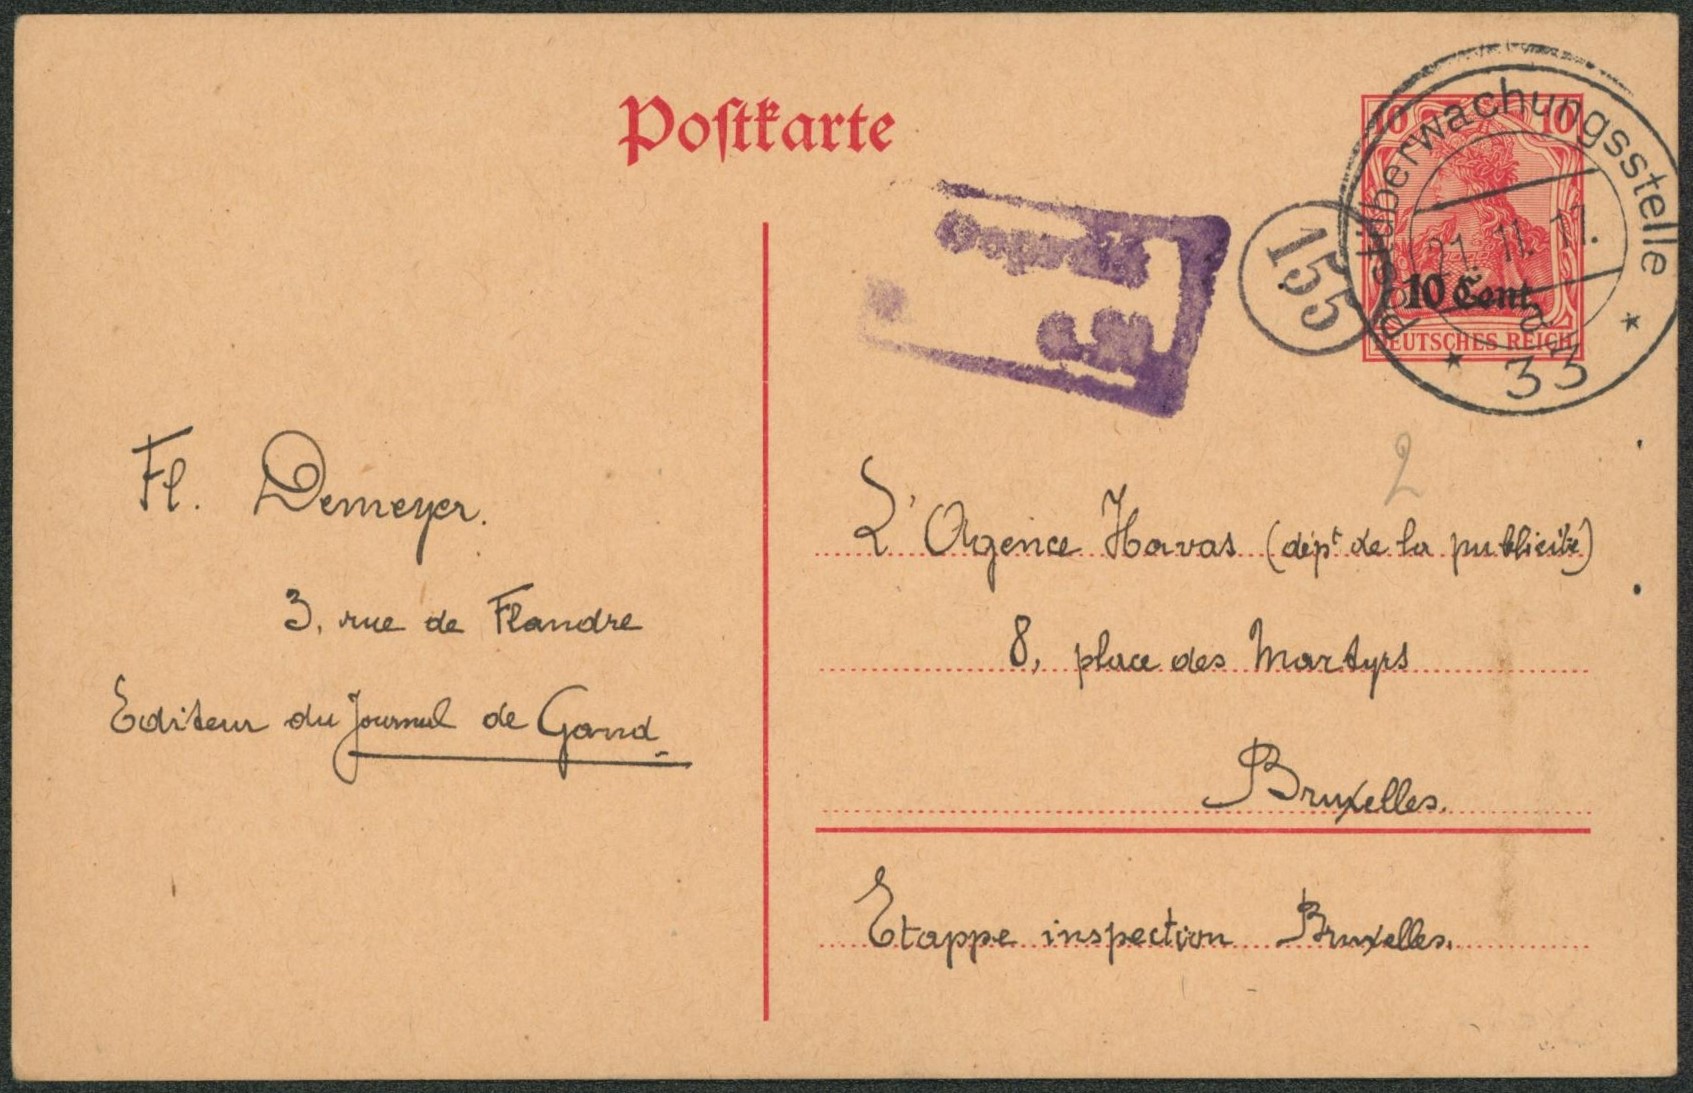 Postkarte
10 10
10 Cent.
DEUTSCHES REICH
Postüberwachungsstelle
21. 11. 17.
a
* 33 *
155
2
Fl. Demeyer.
3, rue de Flandre
Editeur du Journal de Gand
L'Agence Havas (dépt de la publicité)
8, place des Martyrs
Bruxelles.
Etappe inspection Bruxelles.